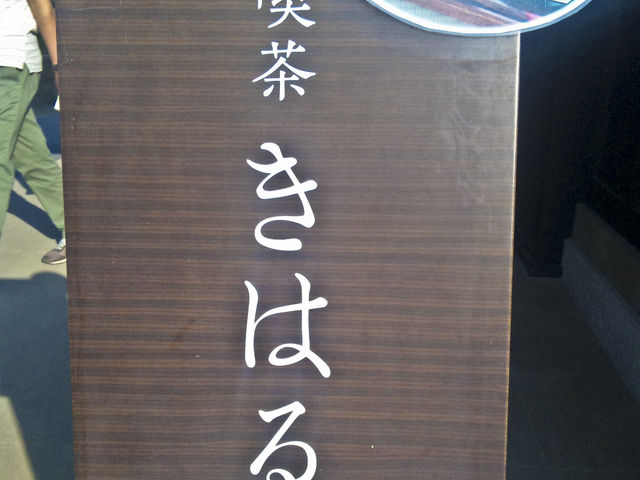 喫茶
きはる